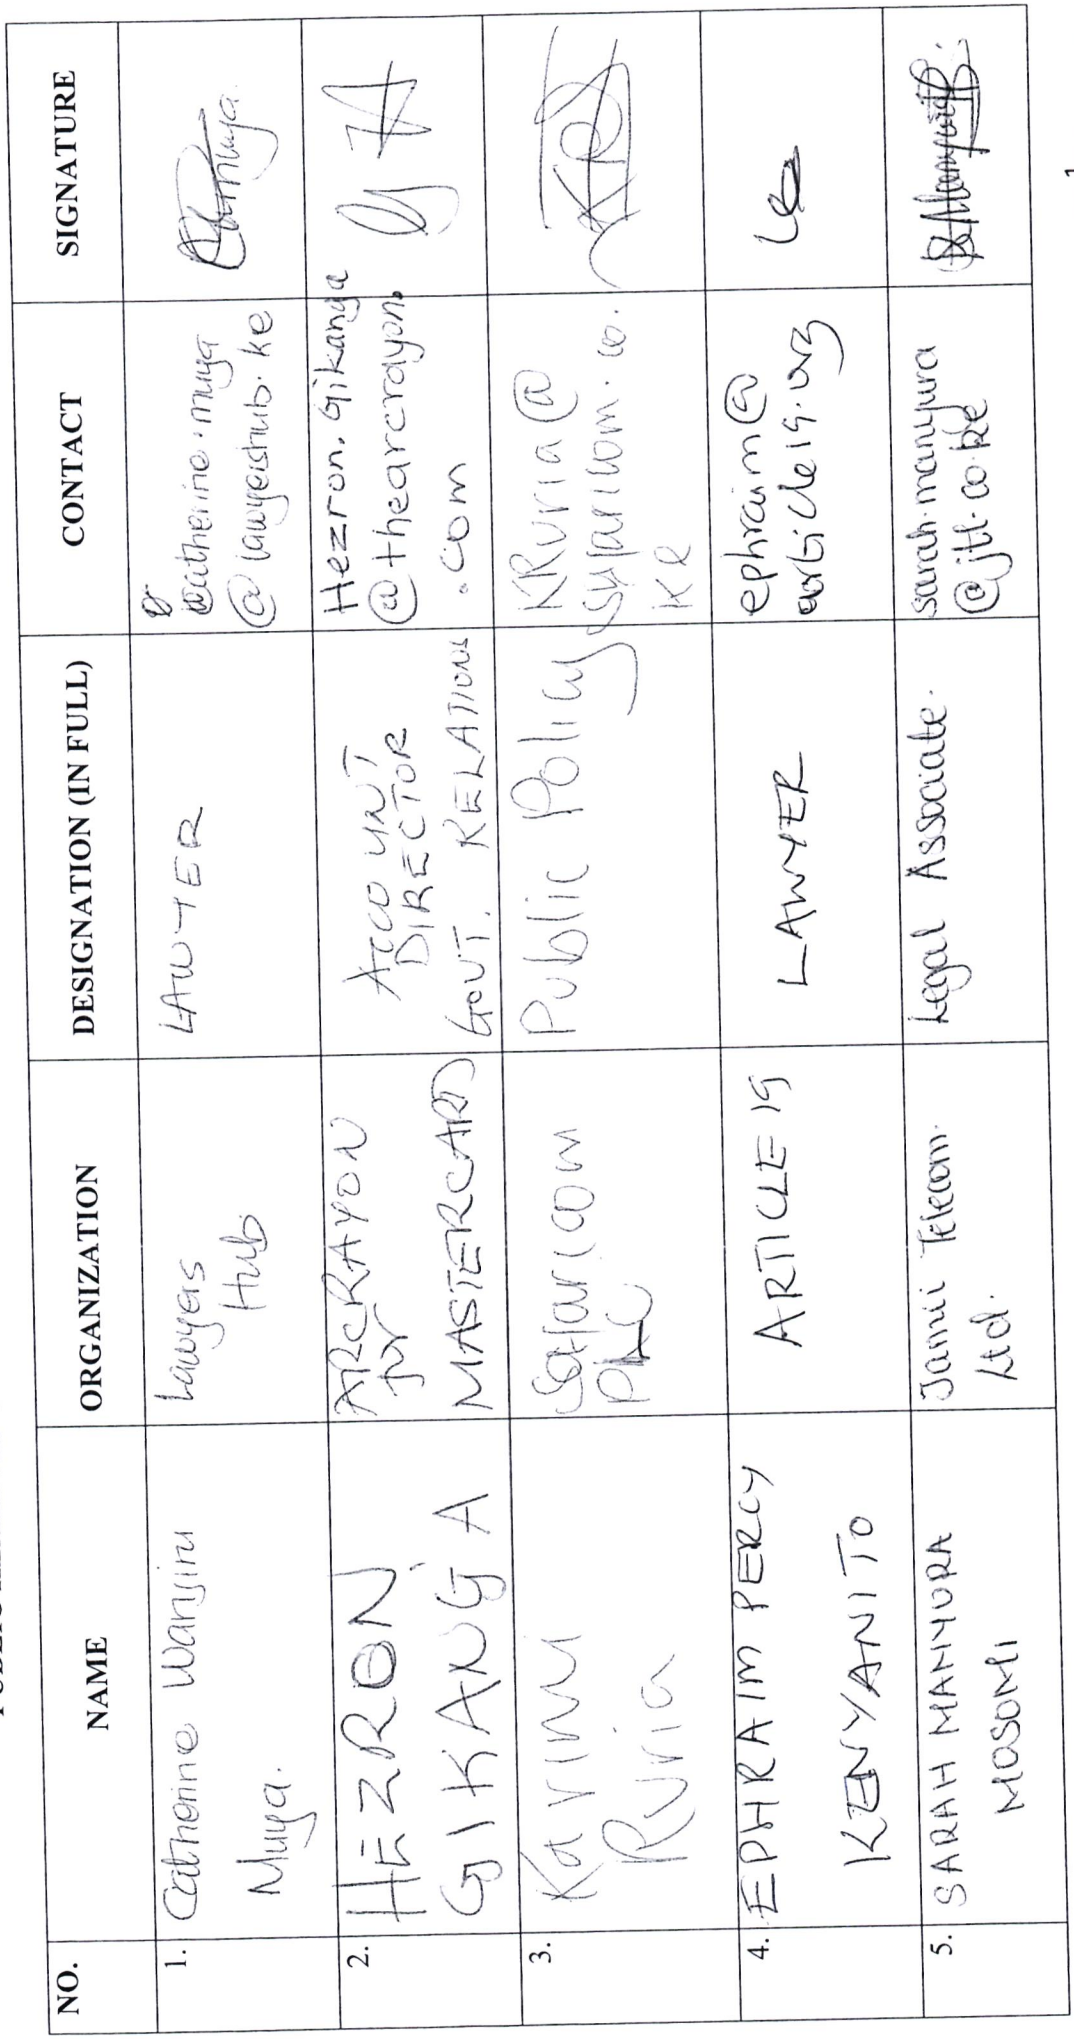 NO. NAME ORGANIZATION DESIGNATION (IN FULL) CONTACT SIGNATURE
1. Catherine Wanjiru Muya. Lawyers Hub LAWYER catherine.muya @lawyershub.ke
2. HEZRON GIKANGA ARCRAYON for MASTERCARD ACCOUNT DIRECTOR GOVT. RELATIONS Hezron.Gikanga @thearcrayon. .com
3. Karimi Ruria Safaricom PLC Public Policy KRuria@ safaricom.co. ke
4. EPHRAIM PERCY KENYANITO ARTICLE 19 LAWYER ephraim@ article19.org
5. SARAH MANYURA MOSOMI Jamii Telecom. Ltd. Legal Associate. sarah.manyura @jtl.co.ke
1